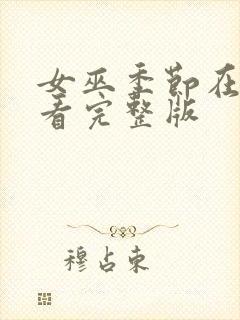 女巫季节在
看完整版
穆占东